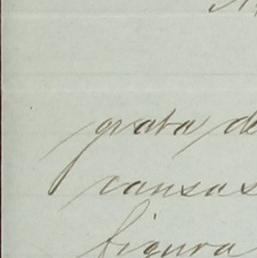 grata de
causas
figura